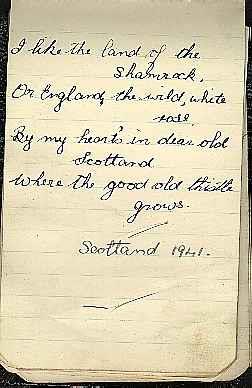 I like the land of the
shamrock,
Or England, the wild, white
rose.
By my heart's in dear old
Scottland
Where the good old thistle
grows.
Scottland 1941.